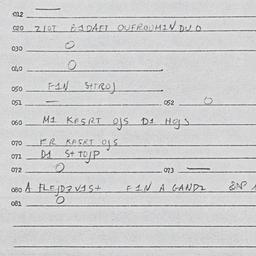 012 —
020 ZIOT BIDAFT OUFROUMIN DU O
030 O
040 O
050 FIN SITROJ
051 — 052 O
060 MI KESRT OJS DI HOJS
070 FR KESRT OJS
071 DI STTOJP
072 O 073 —
080 A FLEJDZVIST FIN A GANDZ
081 O